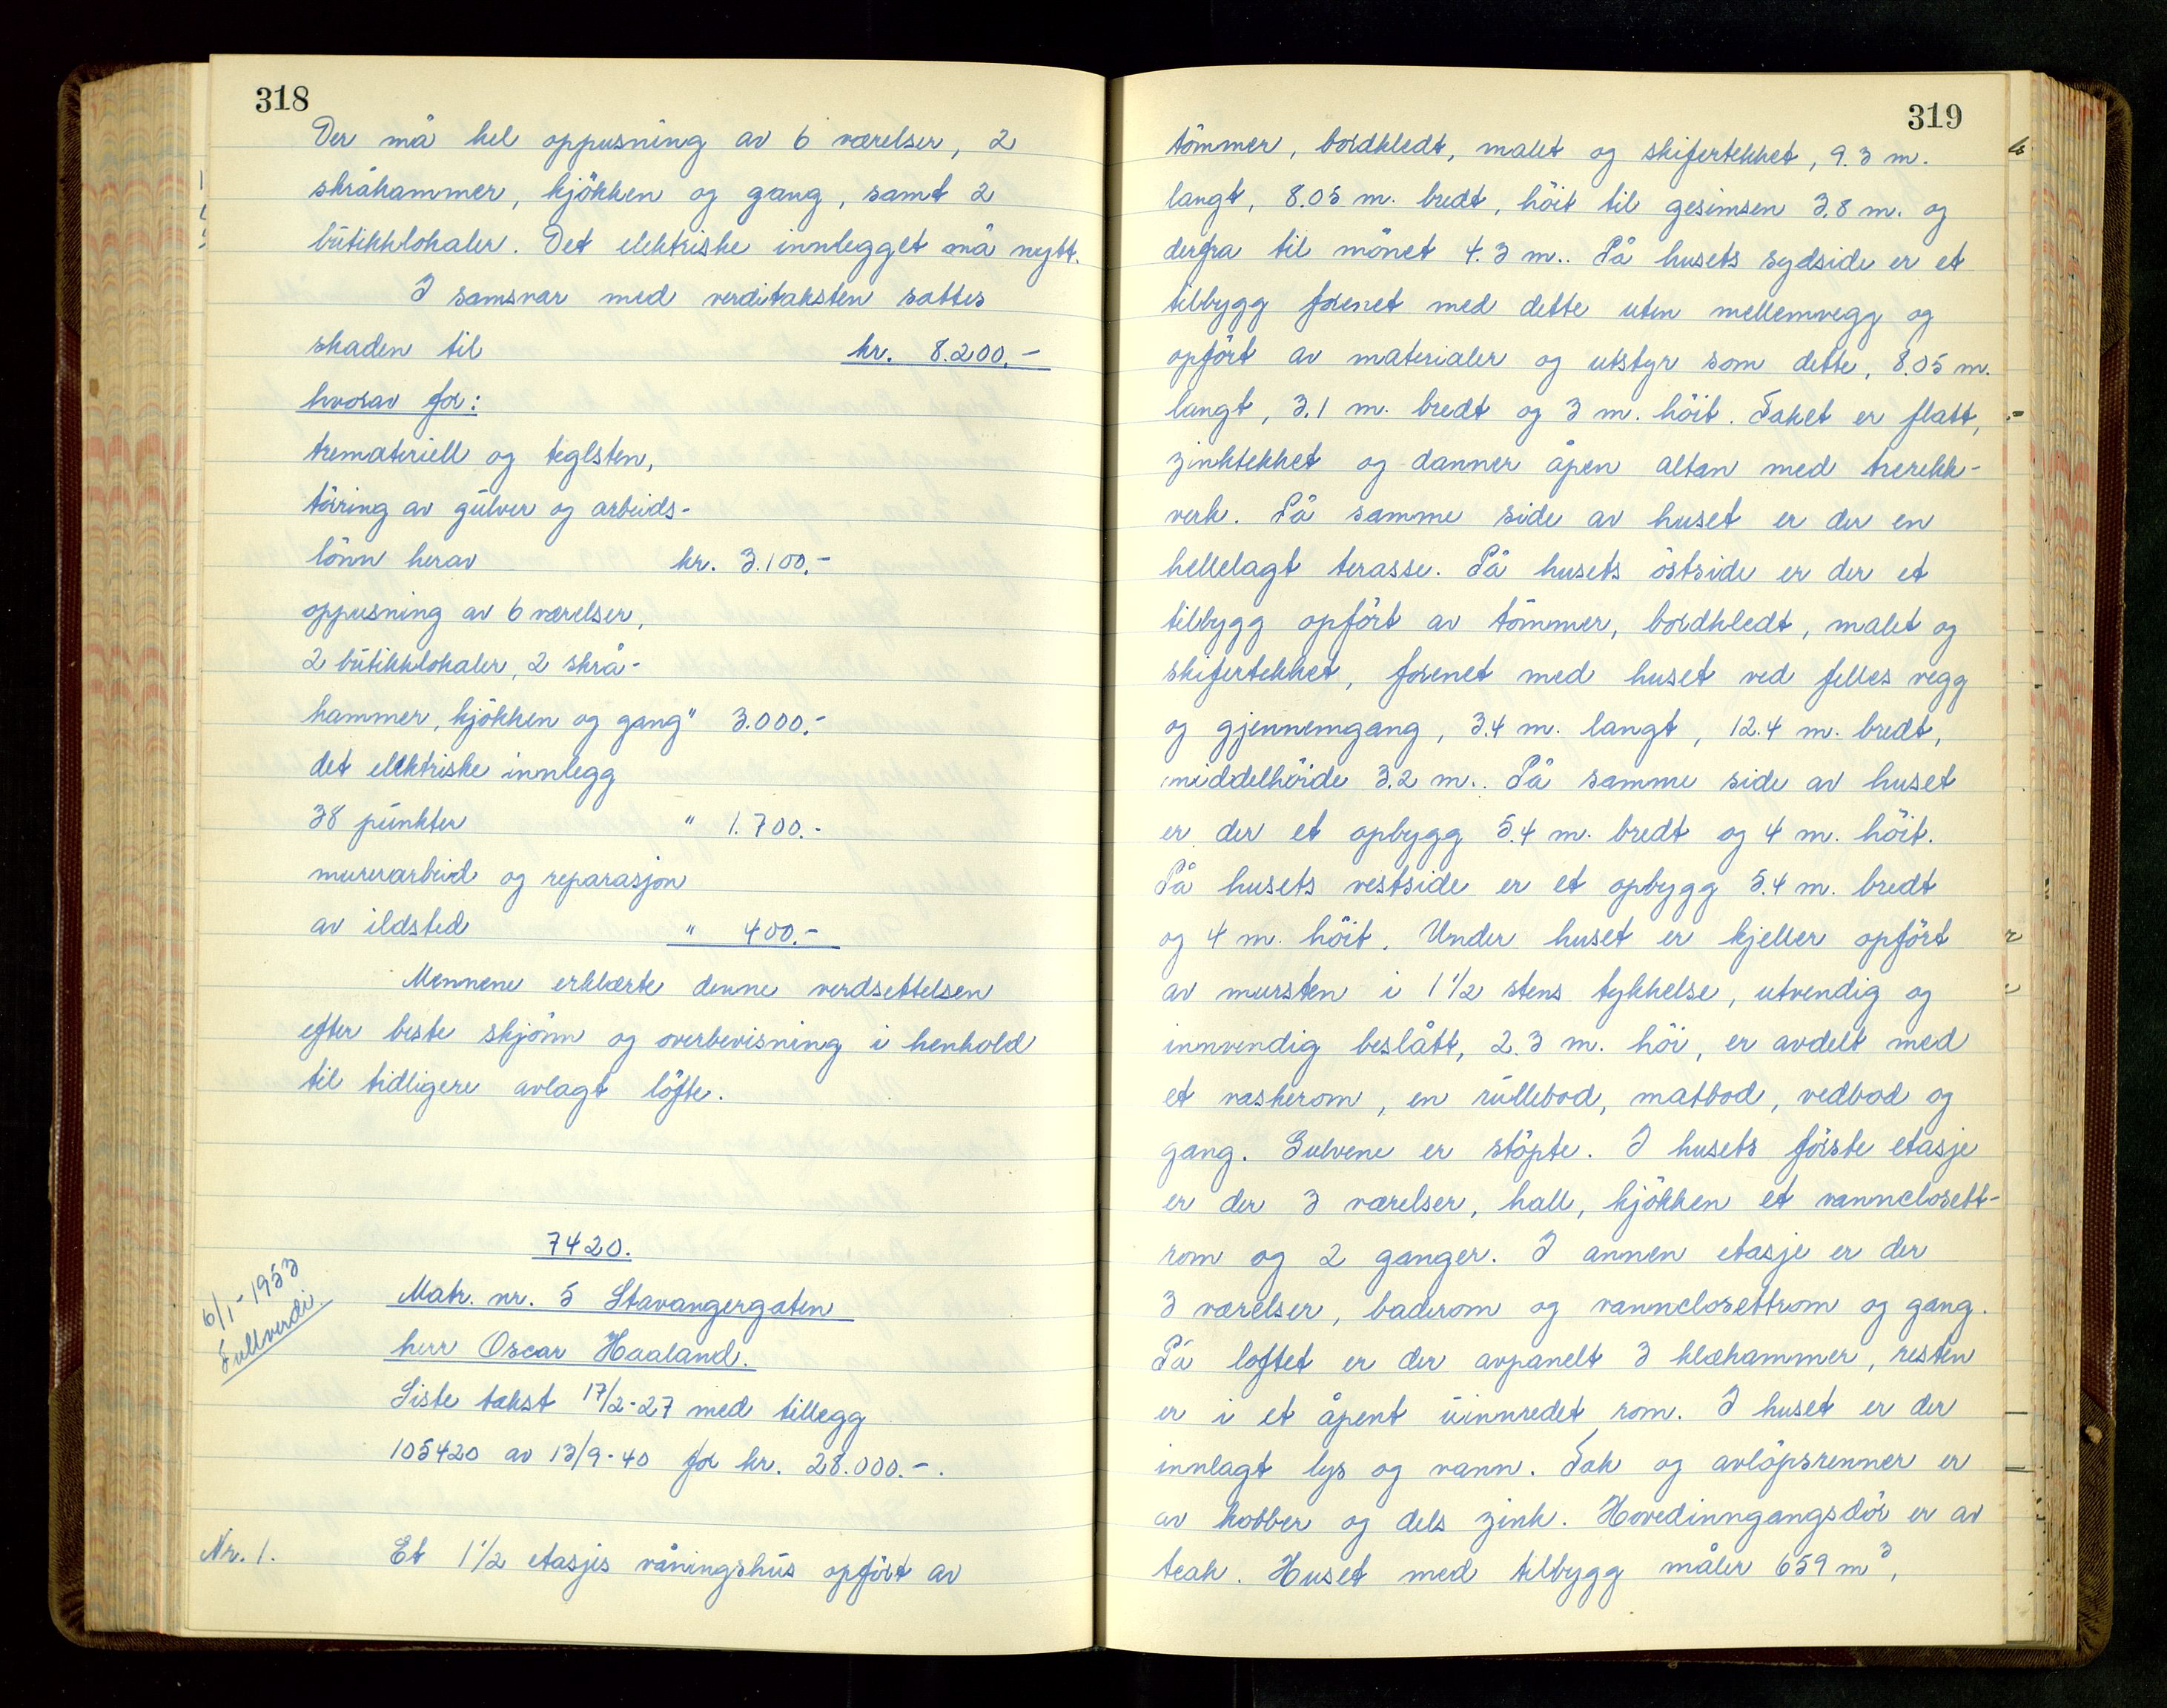 318
Der må hel oppusning av 6 værelser, 2
skråkammer, kjökken og gang, samt 2
butikklokaler. Det elektriske innlegget må nytt.
I samsvar med verditaksten sattes
skaden til kr. 8.200.-
hvorav for:
tremateriell og teglsten,
törring av gulver og arbeids-
lönn herav kr. 3.100.-
oppusning av 6 værelser,
2 butikklokaler, 2 skrå-
kammer, kjökken og gang " 3.000.-
det elektriske innlegg
38 punkter " 1.700.-
murerarbeid og reparasjon
av ildsted " 400.-
Mennene erklærte denne verdsettelsen
efter beste skjönn og overbevisning i henhold
til tidligere avlagt löfte.
7420.
6/1-1953
Fullverdi
Matr. nr. 5 Stavangergaten
herr Oscar Haaland.
Siste takst 17/2-27 med tillegg
105420 av 13/9-40 for kr. 28.000.-.
Nr. 1. Et 1 1/2 etasjes våningshus opfört av
319
tömmer, bordkledt, malet og skifertekket, 9.3 m.
langt, 8.05 m. bredt, höit til gesimsen 3.8 m. og
derfra til mönet 4.3 m.. På husets sydside er et
tilbygg forenet med dette uten mellemvegg og
opfört av materialer og utstyr som dette, 8.05 m.
langt, 3.1 m. bredt og 3 m. höit. Taket er flatt,
zinktekket og danner åpen altan med trerekk-
verk. På samme side av huset er der en
hellelagt terasse. På husets östside er der et
tilbygg opfört av tömmer, bordkledt, malet og
skifertekket, forenet med huset ved felles vegg
og gjennemgang, 3.4 m. langt, 12.4 m. bredt,
middelhöide 3.2 m.. På samme side av huset
er der et opbygg 5.4 m. bredt og 4 m. höit.
På husets vestside er et opbygg 5.4 m. bredt
og 4 m. höit. Under huset er kjeller opfört
av mursten i 1 1/2 stens tykkelse, utvendig og
innvendig beslått, 2.3 m. höi, er avdelt med
et vaskerom, en rullebod, matbod, vedbod og
gang. Gulvene er stöpte. I husets förste etasje
er der 3 værelser, hall, kjökken et vannclosett-
rom og 2 ganger. I annen etasje er der
3 værelser, baderom og vannclosettrom og gang.
På loftet er der avpanelt 3 klækammer, resten
er i et åpent uinnredet rom. I huset er der
innlagt lys og vann. Tak og avlöpsrenner er
av kobber og dels zink. Hovedinngangsdör er av
teak. Huset med tilbygg måler 659 m³,